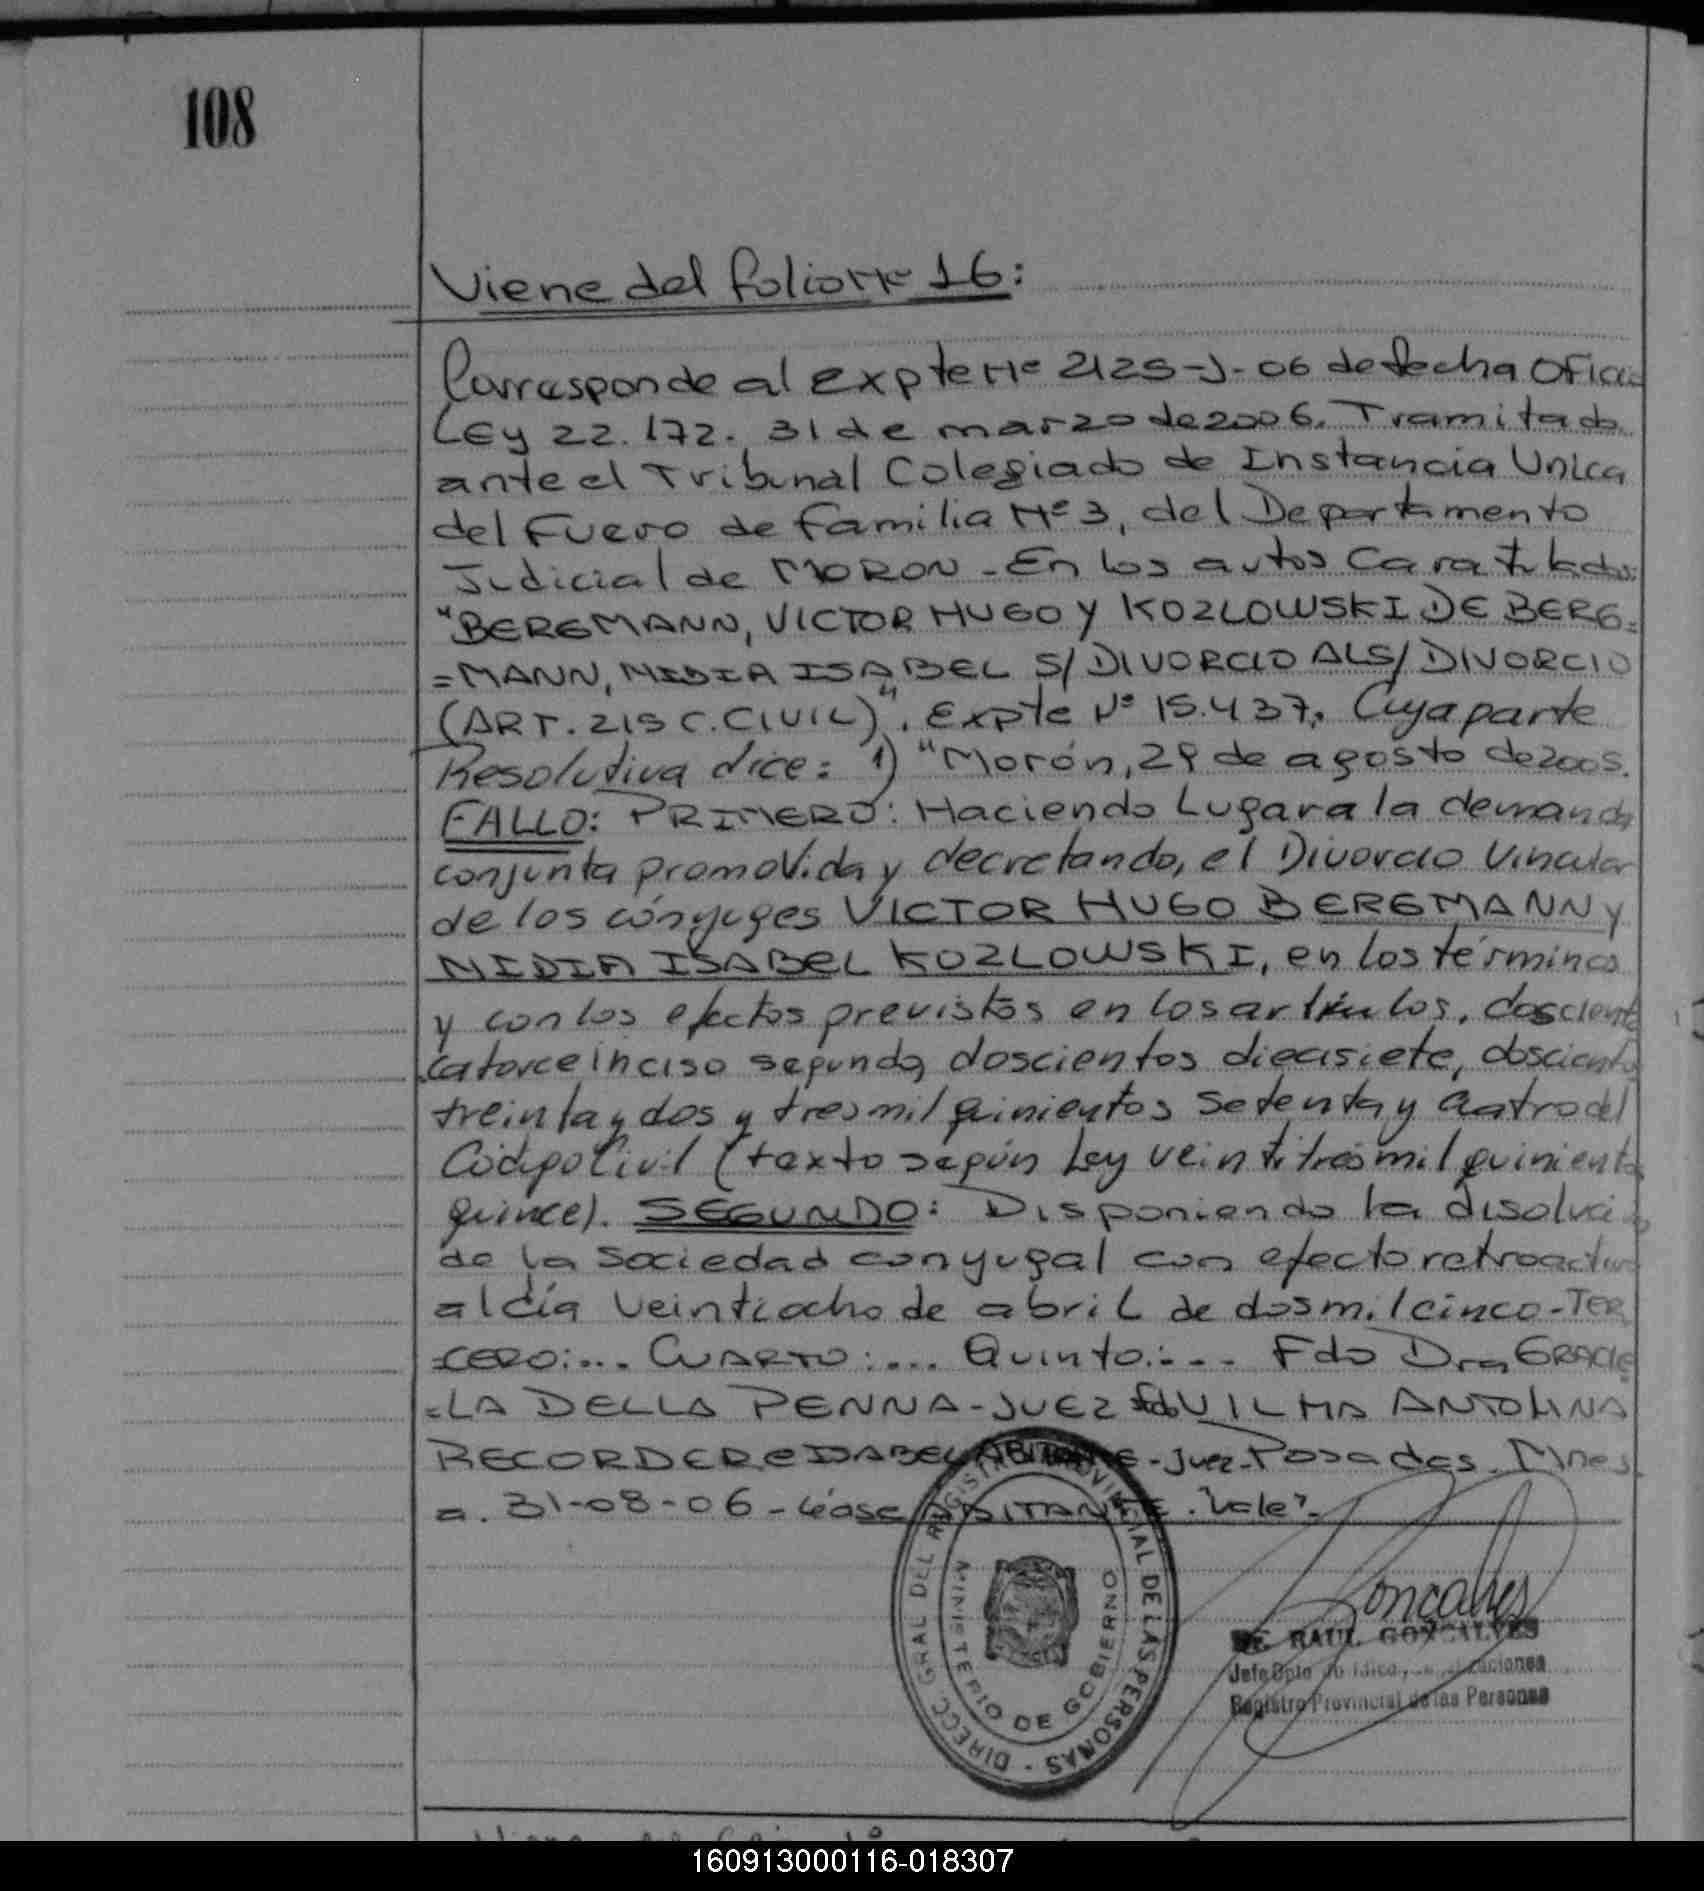 108
Viene del folio Nº 16:
Corresponde al expte Nº 2125-J-06 de fecha Oficio
Ley 22.172. 31 de marzo de 2006. Tramitado
ante el Tribunal Colegiado de Instancia Unica
del Fuero de familia Nº 3, del Departamento
Judicial de MORON - En los autos Caratulados:
"BERGMANN, VICTOR HUGO Y KOZLOWSKI DE BERG=
=MANN, NIDIA ISABEL S/ DIVORCIO ALS/ DIVORCIO
(ART. 215 C. CIVIL)". Expte Nº 15.437, Cuya parte
Resolutiva dice: 1) "Morón, 29 de agosto de 2005.
FALLO: PRIMERO: Haciendo Lugar a la demanda
conjunta promovida y decretando, el Divorcio Vincular
de los cónyuges VICTOR HUGO BERGMANN y
NIDIA ISABEL KOZLOWSKI, en los términos
y con los efectos previstos en los artículos, doscientos
catorce inciso segundo, doscientos diecisiete, doscientos
treinta y dos y tres mil quinientos setenta y cuatro del
Código Civil (texto según Ley veintitrés mil quinientos
quince). SEGUNDO: Disponiendo la disolución
de la sociedad conyugal con efecto retroactivo
al día veintiocho de abril de dos mil cinco - TER
=CERO:... CUARTO:... Quinto:... Fdo Dra GRACIE
=LA DELLA PENNA - JUEZ fdo VILMA ANTOLINA
RECORDER e ISABEL - Juez - Posadas. Mnes
a. 31-08-06 - Léase ABITANTE. "Vale".
DIRECC GRAL DEL REGISTRO PROVINCIAL DE LAS PERSONAS
MINISTERIO DE GOBIERNO
Goncalves
RAUL GONCALVES
Jefe Dpto
Registro Provincial de las Personas
160913000116-018307